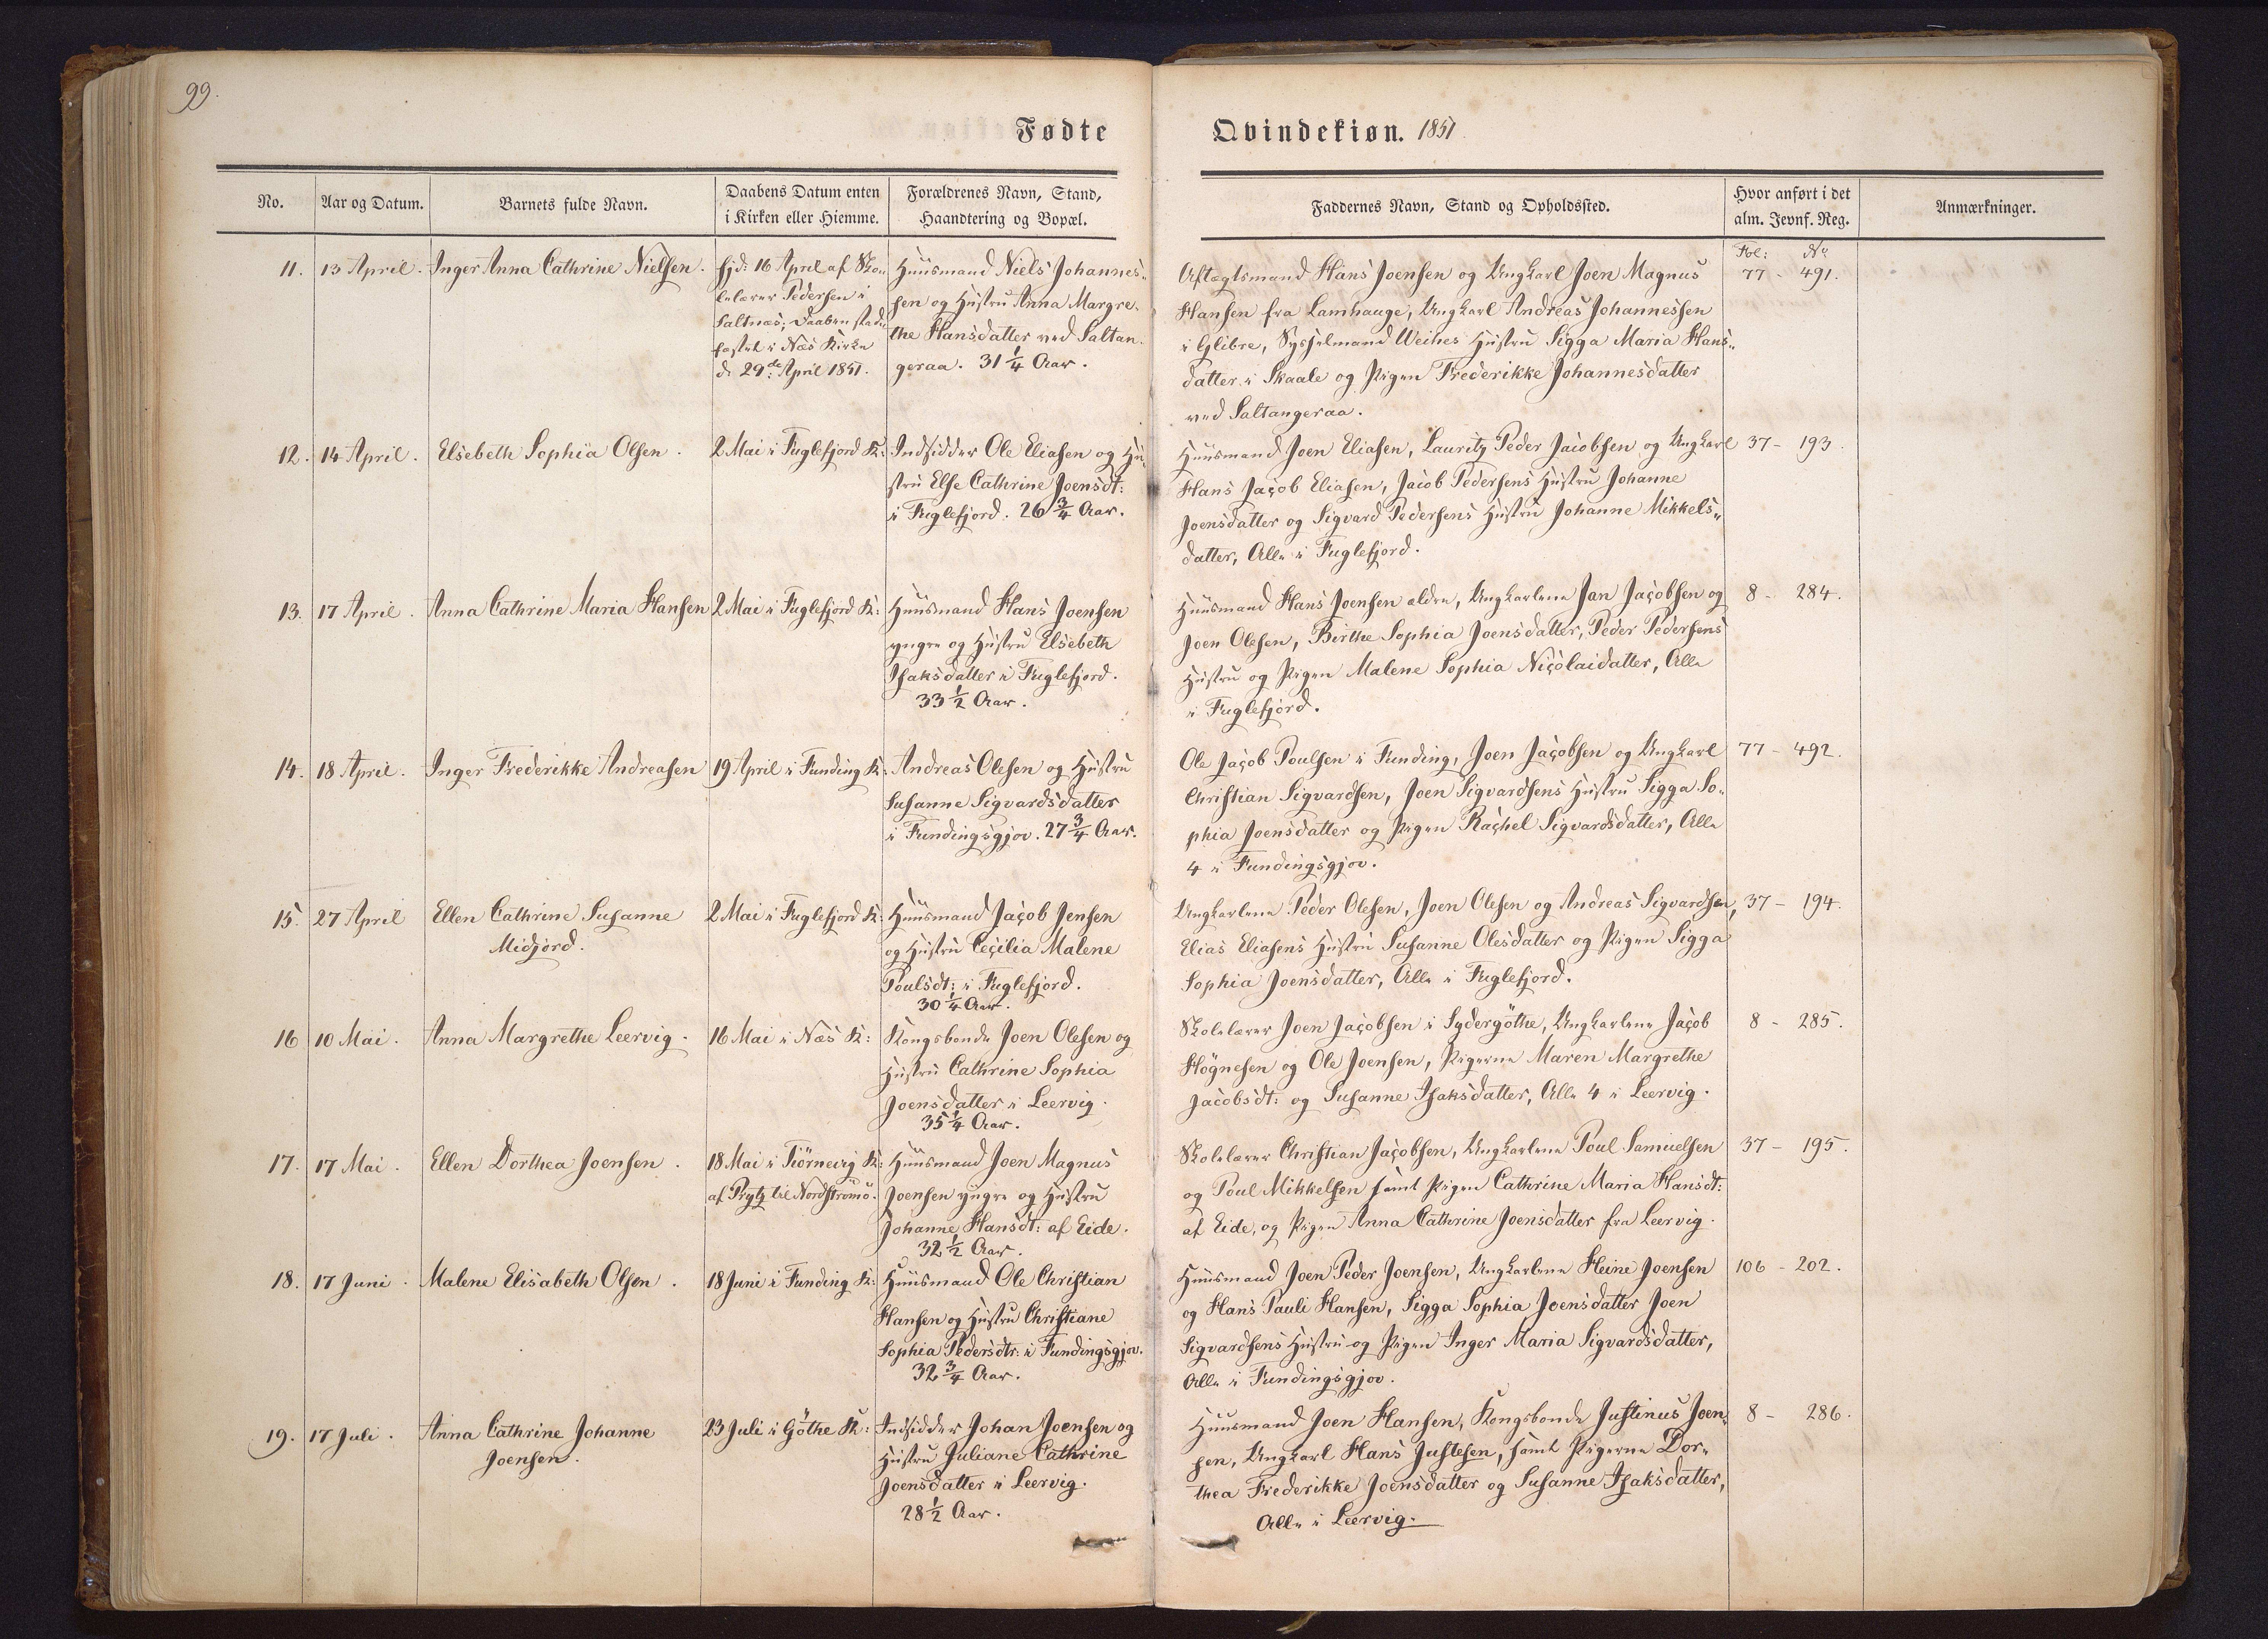 99.
Fødte
Qvindekiøn. 1851
No.
Aar og Datum.
Barnets fulde Navn.
Daabens Datum enten
i Kirken eller Hiemme.
Forældrenes Navn, Stand,
Haandtering og Bopæl.
Faddernes Navn, Stand og Opholdssted.
Hvor anført i det
alm. Jevnf. Reg.
Anmærkninger.
Fol: No
11. 13 April. Inger Anna Cathrine Nielsen.
hjd: 16 April af Sko-
lelærer Pedersen i
Saltnæs; Daaben stad-
fæstet i Næs Kirke
d. 29de April 1851.
Huusmand Niels Johannes-
sen og Hustru Anna Margre-
the Hansdatter ved Saltan-
geraa. 31 1/4 Aar.
Aftægtsmand Hans Joensen og Ungkarl Joen Magnus
Hansen fra Lamhauge, Ungkarl Andreas Johannessen
i Glibre, Sysselmand Weihes Hustru Sigga Maria Hans-
datter i Skaale og Pigen Frederikke Johannesdatter
ved Saltangeraa.
77 - 491.
12. 14 April. Elsebeth Sophia Olsen.
2 Mai i Fuglefjord K:
Indsidder Ole Eliasen og Hu-
stru Else Cathrine Joensdt:
i Fuglefjord. 26 3/4 Aar.
Huusmand Joen Eliasen, Lauritz Peder Jacobsen og Ungkarl
Hans Jacob Eliasen, Jacob Pedersens Hustru Johanne
Joensdatter og Sigvard Pedersens Hustru Johanne Mikkels-
datter, Alle i Fuglefjord.
37 - 193.
13. 17 April. Anna Cathrine Maria Hansen
2 Mai i Fuglefjord K:
Huusmand Hans Joensen
yngre og Hustru Elsebeth
Isaksdatter i Fuglefjord.
33 1/2 Aar.
Huusmand Hans Joensen ældre, Ungkarlene Jan Jacobsen og
Joen Olesen, Birthe Sophia Joensdatter, Peder Pedersens
Hustru og Pigen Malene Sophia Nicolaidatter, Alle
i Fuglefjord.
8 - 284.
14. 18 April. Inger Frederikke Andreasen
19 April i Funding K:
Andreas Olesen og Hustru
Susanne Sigvardsdatter
i Fundingsgjov. 27 3/4 Aar.
Ole Jacob Poulsen i Funding, Joen Jacobsen og Ungkarl
Christian Sigvardsen, Joen Sigvardsens Hustru Sigga So-
phia Joensdatter og Pigen Rachel Sigvardsdatter, Alle
4 i Fundingsgjov.
77 - 492.
15. 27 April Ellen Cathrine Susanne
Midjord.
2 Mai i Fuglefjord K:
Huusmand Jacob Jensen
og Hustru Cecilia Malene
Poulsdt: i Fuglefjord.
30 1/4 Aar.
Ungkarlene Peder Olesen, Joen Olesen og Andreas Sigvardsen,
Elias Eliasens Hustru Susanne Olesdatter og Pigen Sigga
Sophia Joensdatter, Alle i Fuglefjord.
37 - 194.
16 10 Mai. Anna Margrethe Leervig.
16 Mai i Næs K:
Kongsbonde Joen Olesen og
Hustru Cathrine Sophia
Joensdatter i Leervig.
35 1/4 Aar.
Skolelærer Joen Jacobsen i Sydergöthe, Ungkarlene Jacob
Högnesen og Ole Joensen, Pigerne Maren Margrethe
Jacobsdt: og Susanne Isaksdatter, Alle 4 i Leervig.
8 - 285.
17. 17 Mai. Ellen Dorthea Joensen.
18 Mai i Tiörnevig K:
af Prytz til Nordströmö.
Huusmand Joen Magnus
Joensen yngre og Hustru
Johanne Hansdt: af Eide.
32 1/2 Aar.
Skolelærer Christian Jacobsen, Ungkarlene Poul Samuelsen
og Poul Mikkelsen samt Pigen Cathrine Maria Hansdt:
af Eide, og Pigen Anna Cathrine Joensdatter fra Leervig.
37 - 195.
18. 17 Juni. Malene Elisabeth Olsen.
18 Juni i Funding K:
Huusmand Ole Christian
Hansen og Hustru Christiane
Sophia Pedersdtr: i Fundingsgjov.
32 3/4 Aar.
Huusmand Joen Peder Joensen, Ungkarlene Heine Joensen
og Hans Pauli Hansen, Sigga Sophia Joensdatter Joen
Sigvardsens Hustru og Pigen Inger Maria Sigvardsdatter,
Alle i Fundingsgjov.
106 - 202.
19. 17 Juli. Anna Cathrine Johanne
Joensen.
23 Juli i Göthe K:
Indsidder Johan Joensen og
Hustru Juliane Cathrine
Joensdatter i Leervig.
28 1/2 Aar.
Huusmand Joen Hansen, Kongsbonde Justinus Joen-
sen, Ungkarl Hans Justesen, samt Pigerne Dor-
thea Frederikke Joensdatter og Susanne Isaksdatter,
Alle i Leervig.
8 - 286.